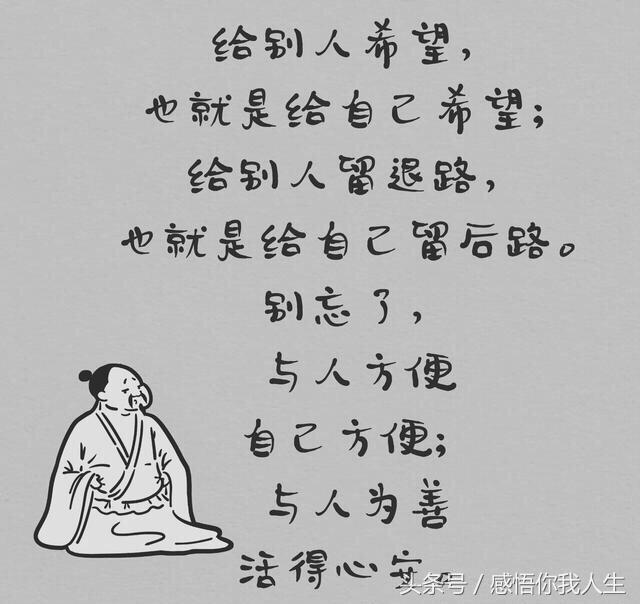 给别人希望，
也就是给自己希望；
给别人留退路，
也就是给自己留后路。
别忘了，
与人方便
自己方便；
与人为善
活得心安。
头条号／感悟你我人生